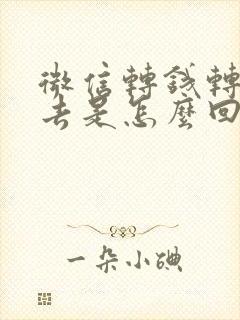 微信轉錢轉
去是怎麼回
一朵小碘